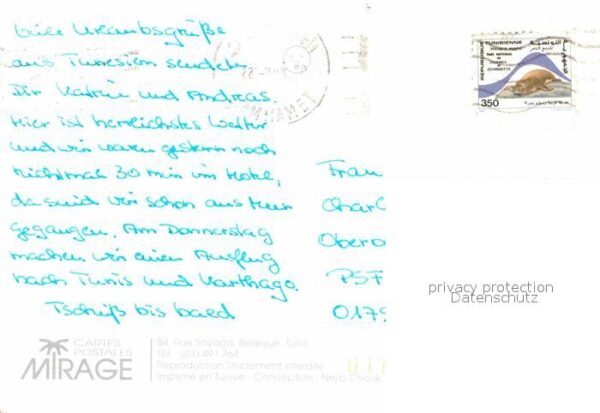 Liebe Urlaubsgrüße
aus Tunesien senden
Dir Katrin und Andreas.
Hier ist herrlichstes Wetter
und wir waren gestern noch
nichtmal 30 min im Hotel,
da sind wir schon ans Meer
gegangen. Am Donnerstag
machen wir einen Ausflug
nach Tunis und Karthago.
Tschüß bis bald
Frau
Charl
Obero
PSF
0179
REPUBLIQUE TUNISIENNE
PARC NATIONAL
ZEMBRA
ZEMBRETTA
350
HAMMAMET
privacy protection
Datenschutz
CARTES
POSTALES
MIRAGE
84, Rue Sayada, Bellevue, Tunis
Tél. : (01) 491 764
Reproduction Strictement interdite
Imprimé en Tunisie - Conception : Nejib Chouk